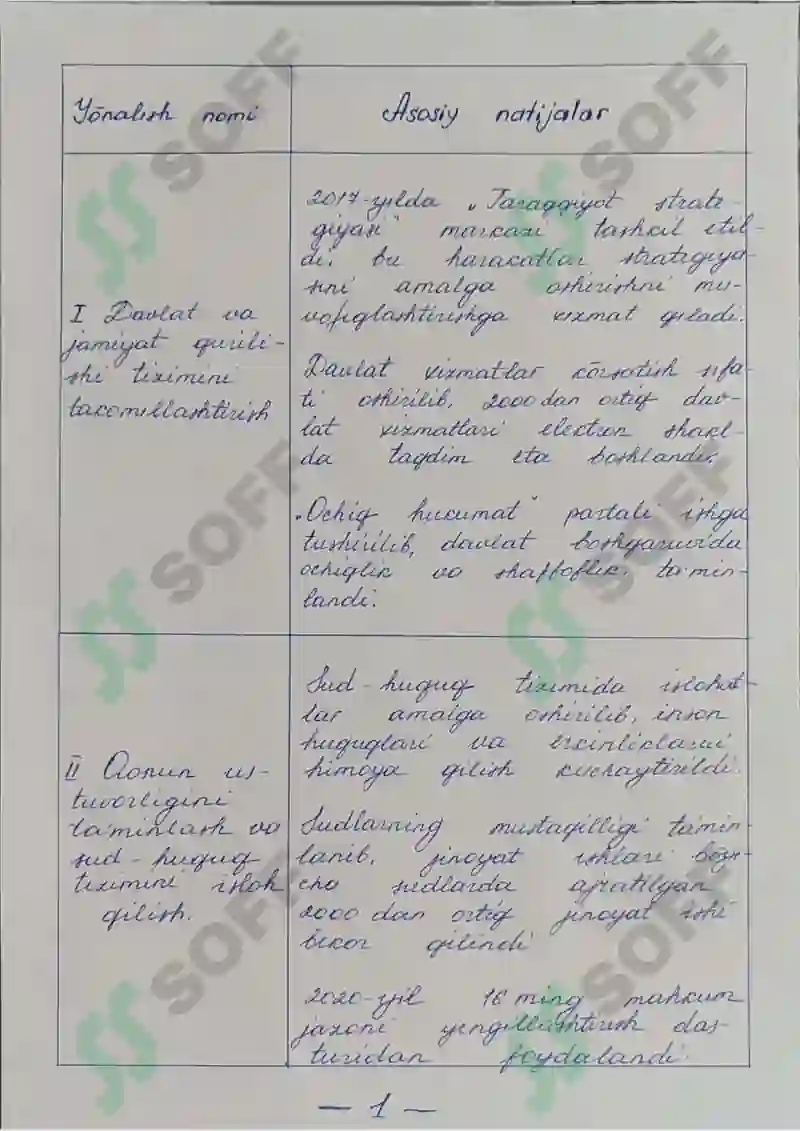 Yōnalish nomi
Asosiy natijalar
I Davlat va
jamiyat qurili-
shi tizimini
takomillashtirish
2017-yilda „Taraqqiyot strate-
giyasi" markazi tashkil etil-
di, bu harakatlar strategiya-
sini amalga oshirishni mu-
vofiqlashtirishga xizmat qiladi.
Davlat xizmatlar kōrsatish sifa-
ti oshirilib, 2000 dan ortiq dav-
lat xizmatlari elektron shakl-
da taqdim eta boshlandi.
„Ochiq hukumat" portali ishga
tushirilib, davlat boshqaruvida
ochiqlik va shaffoflik ta'min-
landi.
II Qonun us-
tuvorligini
ta'minlash va
sud-huquq
tizimini isloh
qilish.
Sud-huquq tizimida islohat-
lar amalga oshirilib, inson
huquqlari va erkinliklarini
himoya qilish kuchaytirildi.
Sudlarning mustaqilligi ta'min-
lanib, jinoyat ishlari bōyi-
cha sudlarda ajratilgan
2000 dan ortiq jinoyat ishi
bekor qilindi
2020-yil 16 ming mahkum
jazoni yengillashtirish das-
turidan foydalandi.
— 1 —
SOFF
SOFF
SOFF
SOFF
SOFF
SOFF